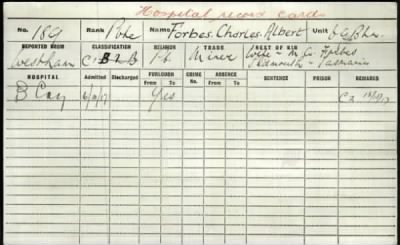 Hospital record card
No. 189 Rank Pte Name Forbes. Charles. Albert Unit
REPORTED FROM CLASSIFICATION RELIGION TRADE NEXT OF KIN
Westham C1 B 2 B Miner Wife - M. C. Forbes
Tasmania
HOSPITAL Admitted Discharged FURLOUGH From To CRIME No. ABSENCE From To SENTENCE PRISON REMARKS
B Coy Yes C2